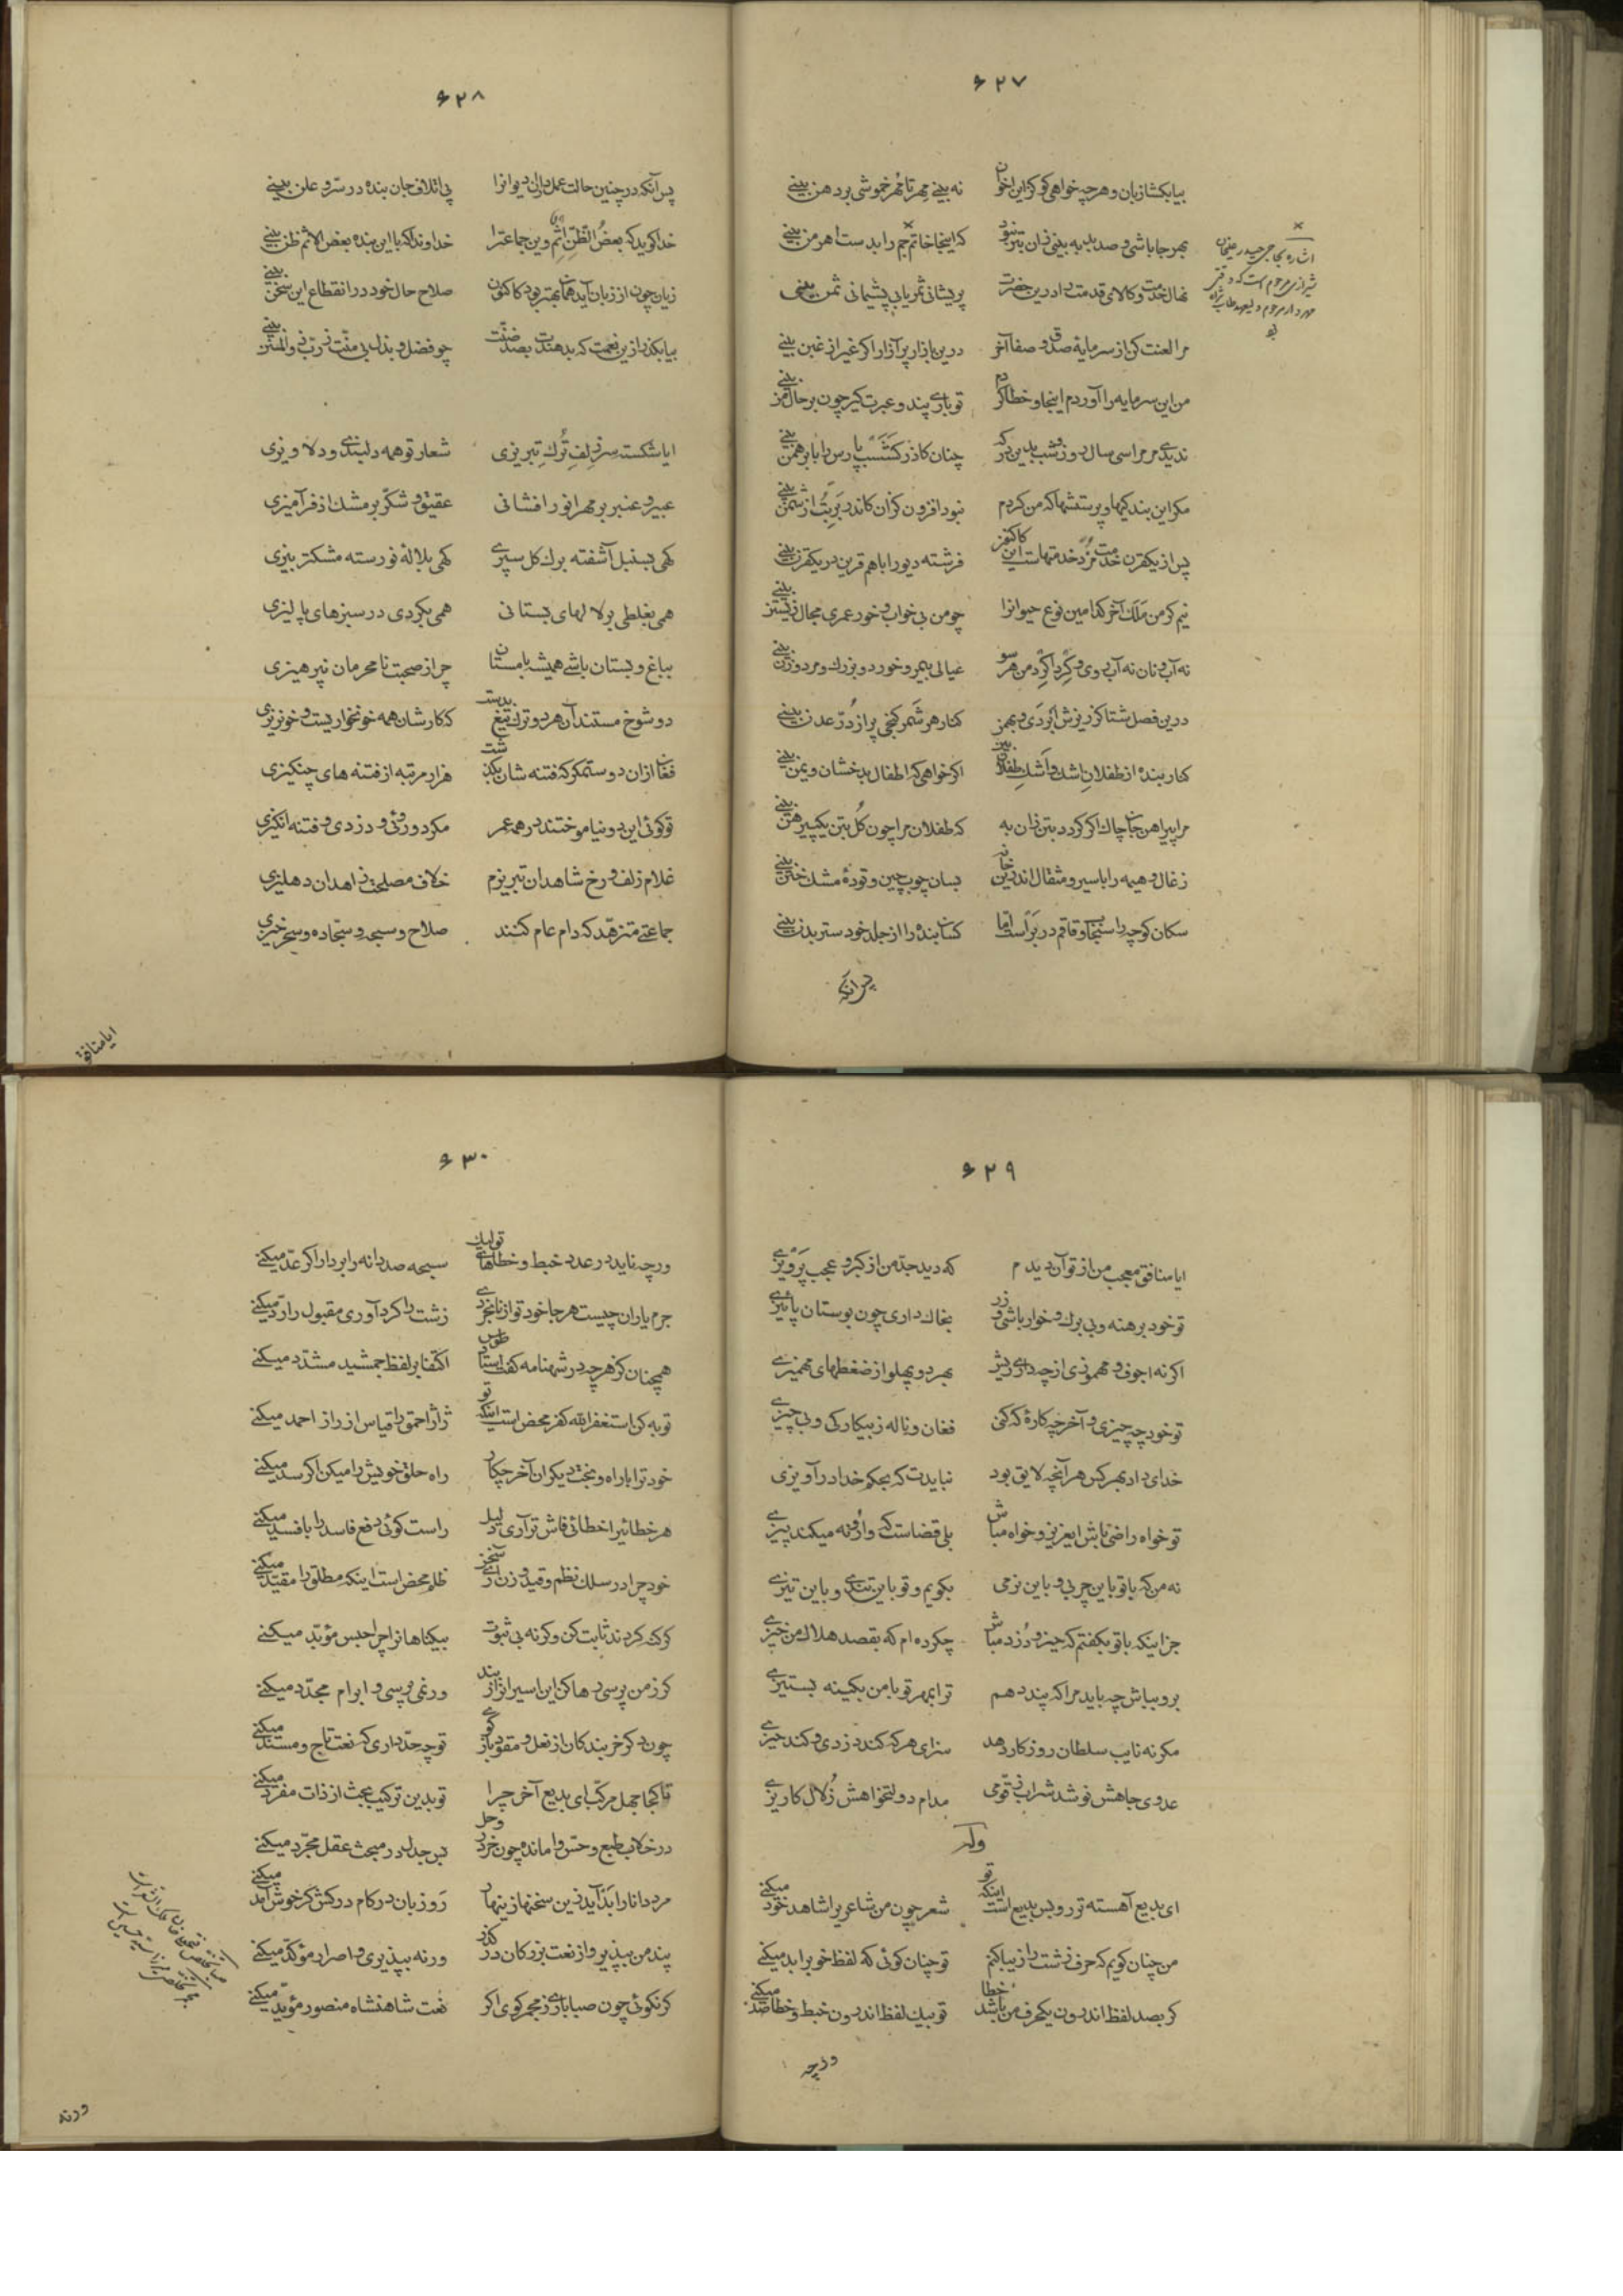 ۶۲۷
بیا بکشا زبان و هرچه خواهی کو کزین اخوان نه بینے مهر تا مهر خموشی بر دهن بینے
بهر جا باشی و صد بد به بینی زان بتر نبود که اینجا خاتم جم را بدست اهرمن بینے
نهال خدمت و کالای قدمت را درین حضرت پریشانی ثمر یابی پشیمانی ثمن بینی
مرا لعنت کن از سرمایهٔ صدق و صفا آخر درین بازار پر آزار اکر غیر از غبن بینے
من این سرمایه را آوردم اینجا و خطا کردم تو باری پند و عبرت کیر چون بر حال من بینے
ندیدی مر مرا سی سال روز و شب بدین درکه چنان کاذر کشسب پارس را با برهمن بینے
مکر این بندکیها و پرستشها که من کردم نبود افزون کزان کاندر بر بت از شمن بینے
پس از یکقرن خدمت مزد خدمتهاست این کاکنون فرشته دیو را با هم قرین در یکقرن بینے
نیم کر من ملک آخر کدامین نوع حیوانرا چو من بی خواب و خور عمری مجال زیستن بینے
نه آب و نان نه آب روی و کرداکرد من هر سو عیالی بیمر و خورد و بزرک و مرد و زن بینے
درین فصل شتا کز ریزش ابر دی و بهمن کنار هر شمر کنجی پر از در عدن بینے
کنار بنده از طفلان اشک و اشک طفلان بین اکر خواهی که اطفال بدخشان و یمن بینے
مرا پیراهن جان چاک اکر کردد بتن زان به که طفلان مرا چون کل بتن یک پیرهن بینے
زغال و هیمه را با سیر و مثقال اندرین خانه بسان چوب چین و تودهٔ مشک ختن بینے
سکان کوچه را سنجاب و قاقم در بر است اما کسان بنده را از جلد خود ستر بدن بینے
پس آنکه
۶۲۸
پس آنکه در چنین حالت عمل داران دیوانرا پی اتلاف جان بنده در سر و علن بینے
خدا کوید که بعض الظن اثم وین جماعترا خداوندا که با این بنده بعض الاثم ظن بینے
زیان چون از زبان آید همان بهتر بود کاکنون صلاح حال خود در انقطاع این سخن بینے
بیا بکذر ازین نعمت که بدهندت بصد ضنت چو فضل و بذل بی منت ز رب ذو المنن بینے
ایا شکسته سر زلف ترک تبریزی شعار تو همه دلبندی و دلاویزی
عبیر و عنبر بر مهر انور افشانی عقیق و شکر بر مشک اذفر آمیزی
کهی بسنبل آشفته برک کل سپری کهی بلالهٔ نورسته مشکتر بیزی
همی بغلطی بر لالهای بستانی همی بکردی در سبزهای پالیزی
بباغ و بستان باشی همیشه با مستان چرا ز صحبت نامحرمان نپرهیزی
دو شوخ مستند آن هر دو ترک تیغ بدست که کارشان همه خونخواریست و خونریزی
فغان ازان دو ستمکر که فتنه شان بکذشت هزار مرتبه از فتنه های چنکیزی
تو کوئی این دو نیاموختند در همه عمر مکر دوروئی و دزدی و فتنه انکیزی
غلام زلف و رخ شاهدان تبریزم خلاف مصلحت زاهدان دهلیزی
جماعتے متزهد که دام عام کنند صلاح و سبحه و سجاده و سحر خیزی
ایا منافق
۶۲۹
ایا منافق معجب من از تو آن دیدم که دید جد من از کبر و عجب پرویزے
تو خود برهنه و بی برک و خوار باشی و زر بخاک داری چون بوستان پائیزے
اکر نه اجوف و مهموزی از چه داری ریش بهر دو پهلو از ضغطهای مهمیزے
تو خود چه چیزی و آخر چه کارهٔ که کنی فغان و ناله ز بیکارکی و بی چیزے
خدای داد بهر کس هر آنچه لایق بود نبایدت که بحکم خدا در آویزی
تو خواه راضی باش ای عزیز و خواه مباش بلی قضاست که وارونه میکند پیزے
نه من که با تو باین چربی و باین نرمی بکویم و تو باین تندی و باین تیزے
جز اینکه با تو بکفتم که حیز و دزد مباش چکرده ام که بقصد هلاک من خیزے
برو بباش چه باید مرا که پند دهم ترا بهر تو با من بکینه بستیزے
مکر نه نایب سلطان روزکار دهد سزای هر که کند دزدی و کند حیزے
عدوی جاهش نوشد شراب زقومی مدام دولتخواهش زلال کاریزے
وله
ای بدیع آهسته تر رو بس بدیع است اینکه تو شعر چون من شاعریرا شاهد خود میکنے
من چنان کویم که حرف زشت را زیبا کنم تو چنان کوئی که لفظ خوبرا بد میکنے
کر بصد لفظ اندرون یکحرف من باشد خطا تو بیک لفظ اندرون خبط و خطا صد میکنے
ورچه
۶۳۰
ورچه ناید در عدد خبط و خطاهای تو لیک سبحه صد دانه را بردار اکر عد میکنے
جرم یاران چیست هر جا خود تو از نابخردی زشت را کرد آوری مقبول را رد میکنے
همچنان کز هرچه در شهنامه کفت استاد طوس اکتفا بر لفظ جمشید مشدد میکنے
توبه کن استغفر الله کفر محض است اینکه تو ژاژ احمق را قیاس از راز احمد میکنے
خود ترا با راه و نخت دیکران آخر چکار راه حلق خویش را میکن اکر سد میکنے
هر خطائیرا خطائی فاش تر آری دلیل راست کوئی دفع فاسد را بافسد میکنے
خود چرا در سلک نظم و قید وزن آری سخن ظلم محض است اینکه مطلق را مقید میکنے
کر کنه کردند ثابت کن و کر نه بی ثبوت بیکناهانرا چرا حبس مؤبد میکنے
کر ز من پرسی رها کن این اسیرانرا ز بند ور نمی پرسی و ابرام مجدد میکنے
چون دکر خربندکان از نعل و مقود باز کوے تو چه حد داری که نعت تاج و مسند میکنے
تا کجا جهل مرکب ای بدیع آخر چرا تو بدین ترکیب بحث از ذات مفرد میکنے
در خلاب طبع و حس وامانده چون خر در وحل پس جدل در مبحث عقل مجرد میکنے
مرد دانا را بد آید زین سخنها زینهار رو زبان در کام درکش کر خوش آمد میکنے
پند من بپذیر و از نعت بزرکان در کذر ورنه بپذیری و اصرار مؤکد میکنے
کر نکوئی چون صبا باری ز مجمر کوی اکر نعت شاهنشاه منصور مؤید میکنے
ورنه